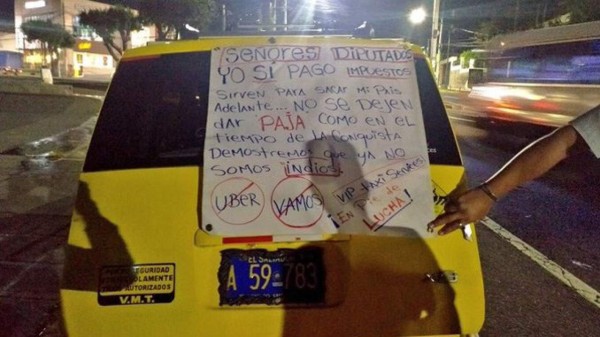 SEÑORES DIPUTADOS
YO SÍ PAGO IMPUESTOS
SIRVEN PARA SACAR MI PAIS
Adelante... NO SE DEJEN
dar PAJA COMO EN EL
TIEMPO DE LA CONQUISTA
DEMOSTREMOS QUE YA NO
SOMOS ¡INDIOS!
UBER
VAMOS
VIP-TAXI SERVICES
¡EN PIE DE
LUCHA!
EL SALVADOR
A 59 783
SEGURIDAD
SOLAMENTE
AUTORIZADOS
V.M.T.